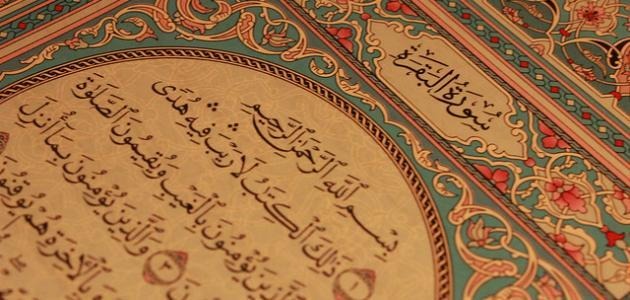 سُورَةُ البَقَرَةِ
بِسْمِ ٱللَّهِ ٱلرَّحْمَٰنِ ٱلرَّحِيمِ
١ ذَٰلِكَ ٱلْكِتَٰبُ لَا رَيْبَ ۛ فِيهِ ۛ هُدًى
ٱلَّذِينَ يُؤْمِنُونَ بِٱلْغَيْبِ وَيُقِيمُونَ ٱلصَّلَوٰةَ
٣ وَٱلَّذِينَ يُؤْمِنُونَ بِمَآ أُنزِلَ
وَبِٱلْءَاخِرَةِ هُمْ يُوقِنُونَ